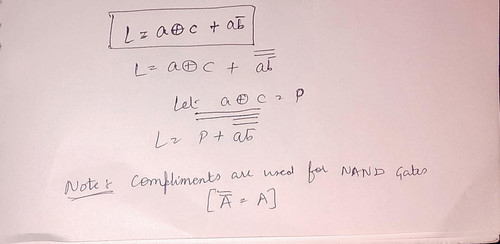 L = a⊕c + ab̅
L = a⊕c + a̿b̿̅
Let a⊕c = P
L = P + a̿b̿̅
Note: Compliments are used for NAND Gates
[A̿ = A]